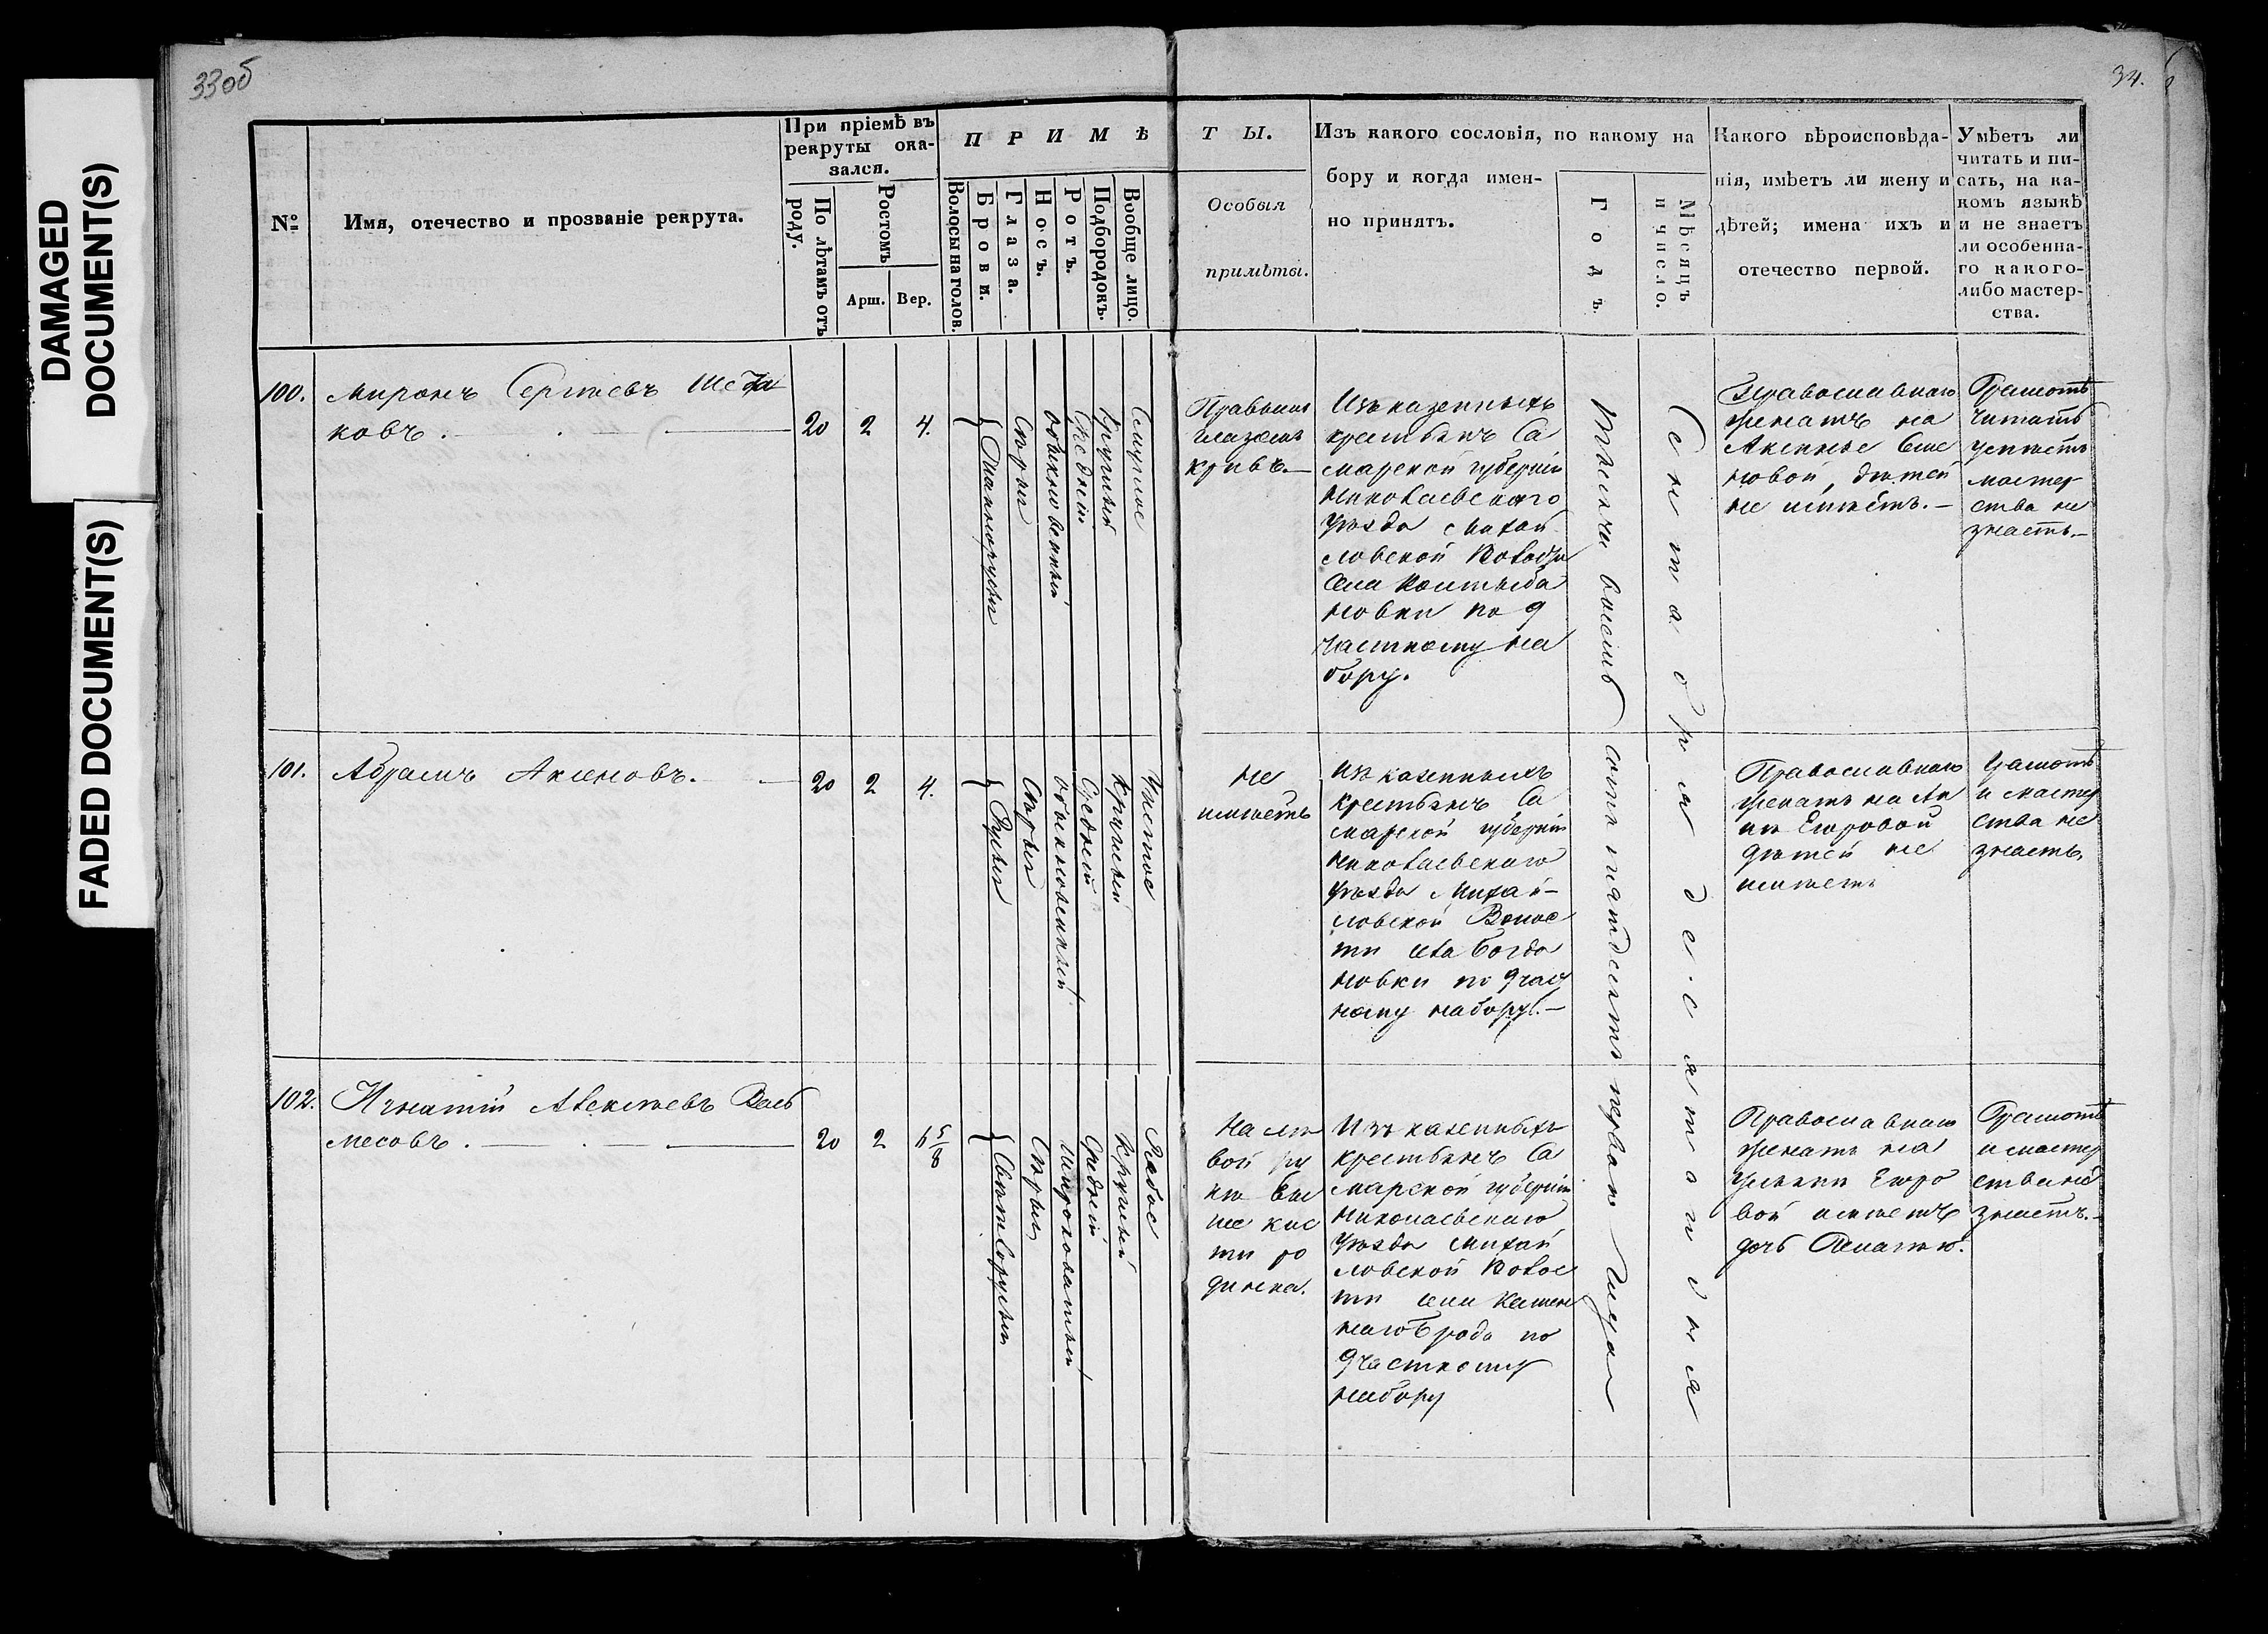 33об
34.
DAMAGED
DOCUMENT(S)
FADED DOCUMENT(S)
№
Имя, отечество и прозваніе рекрута.
При пріемѣ въ
рекруты ока-
зался.
По лѣтамъ отъ
роду.
Ростомъ
Арш.
Вер.
ПРИМѢ
Волосы на голов.
Брови.
Глаза.
Носъ.
Ротъ.
Подбородокъ.
Вообще лицо.
ТЫ.
Особыя
примѣты.
Изъ какого сословія, по какому на
бору и когда имен-
но принятъ.
Годъ.
Мѣсяцъ
и число.
Какого вѣроисповѣда-
нія, имѣетъ ли жену и
дѣтей; имена ихъ и
отечество первой.
Умѣетъ ли
читать и пи-
сать, на ка-
комъ языкѣ
и не знаетъ
ли особенна-
го какого-
либо мастер-
ства.
100.
Миронъ Сергѣевъ
ковъ.
20
2
4.
Темнорусыя
Сѣрыя
обыкновенный
Средній
Круглый
Смуглое
Правымъ
глазомъ
кривъ.—
Изъ казенныхъ
крестьянъ Са
марской губерніи
Николаевскаго
уѣзда Михай
ловской Волости
села
новки по 9
частному на
бору.
Тысяча восемь сотъ пятьдесятъ перваго года
Сентября десятого дня
Православнаго
женатъ на
Аксинье Семе
новой, дѣтей
не имѣетъ.—
Грамотѣ
читать
умѣетъ
мастер
ства не
знаетъ.—
101.
Абрамъ Аксеновъ.
20
2
4.
Русыя
Сѣрыя
обыкновенный
Средній
Круглый
Чистое
Не
имѣетъ
Изъ казенныхъ
крестьянъ Са
марской губерніи
Николаевскаго
уѣзда Михай-
ловской Волос
ти села Богда
новки по 9 част
ному набору.—
Православнаго
женатъ на Ан
нѣ Егоровой
дѣтей не
имѣетъ
Грамотѣ
и мастер
ства не
знаетъ.
102.
Игнатій Алексѣевъ
месовъ.
20
2
6 5/8
Свѣтлорусыя
Сѣрыя
Широковатый
Средній
Круглый
Рябое
На лѣ
вой ру
кѣ вы
ше кис
ти ро
динка.
Изъ казенныхъ
крестьянъ Са
марской губерніи
Николаевскаго
уѣзда Михай
ловской Волос
ти села Камен
наго Брода по
9 частному
набору
Православнаго
женатъ на
Егоро
вой имѣетъ
дочь Пелагѣю.
Грамотѣ
и мастер
ства не
знаетъ.—